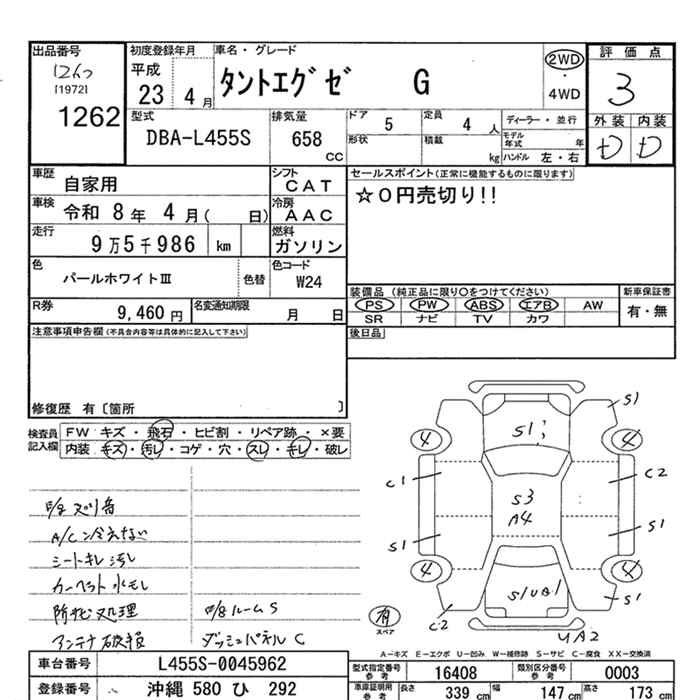 出品番号
[1972]
1262
初度登録年月
平成
23 4月
車名・グレード
タントエグゼ G
2WD
・
4WD
評価点
3
外装 内装
D D
型式
DBA-L455S
排気量
658
cc
ドア 5
定員 4 人
形状
積載 kg
ディーラー・並行
モデル年式 年
ハンドル 左・右
車歴 自家用
シフト CAT
車検 令和 8年 4月( 日)
冷房 AAC
走行 9万5千986 km
燃料 ガソリン
色 パールホワイトⅢ
色替
色コード W24
R券 9,460 円
名変通知期限 月 日
セールスポイント(正常に機能するものに限ります)
☆0円売切り!!
装備品(純正品に限り○をつけてください)
PS PW ABS エアB AW
SR ナビ TV カワ
新車保証書
有・無
後日品
注意事項申告欄(不具合内容等は具体的に記入して下さい)
修復歴 有〔箇所 〕
検査員記入欄
FW キズ・飛石・ヒビ割・リペア跡・×要
内装 キズ・汚レ・コゲ・穴・スレ・キレ・破レ
A/C冷えない
シートキレ汚レ
カーペット水モレ
防サビ処理
アンテナ破損
ルームS
ダッシュパネルC
S1
S1
4
4
C1
C2
S3
A4
S1
S1
4
4
S1UB1
C2
S1
UA2
有
スペア
A-キズ E-エクボ U-凹み W-補修跡 S-サビ C-腐食 XX-交換済
車台番号 L455S-0045962
登録番号 沖縄 580 ひ 292
型式指定番号 参考 16408
類別区分番号 参考 0003
車庫証明用 参考 長さ 339 cm 幅 147 cm 高さ 173 cm